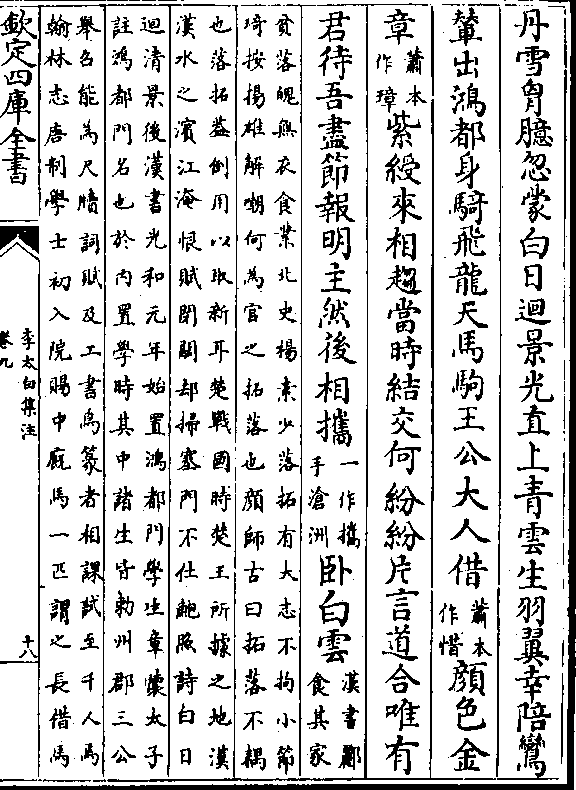 丹雪胷臆忽蒙白日迴景光直上青雲生羽翼幸陪鸞
輦出鴻都身騎飛龍天馬駒王公大人借蕭本作惜顔色金
章蕭本作璋紫綬來相趨當時結交何紛紛片言道合唯有
君待吾盡節報明主然後相攜一作攜手滄洲卧白雲漢書酈食其家
貧落魄無衣食業北史楊素少落拓有大志不拘小節
琦按揚雄解嘲何為官之拓落也顔師古曰拓落不耦
也落拓葢倒用以取新耳楚戰國時楚王所據之地漢
漢水之濱江淹恨賦閉關却掃塞門不仕鮑照詩白日
迴清景後漢書光和元年始置鴻都門學生章懷太子
註鴻都門名也於内置學時其中諸生皆勅州郡三公
舉召能為尺牘詞賦及工書鳥篆者相課試至千人焉
翰林志唐制學士初入院賜中厩馬一匹謂之長借馬
欽定四庫全書
李太白集注
卷九
十八